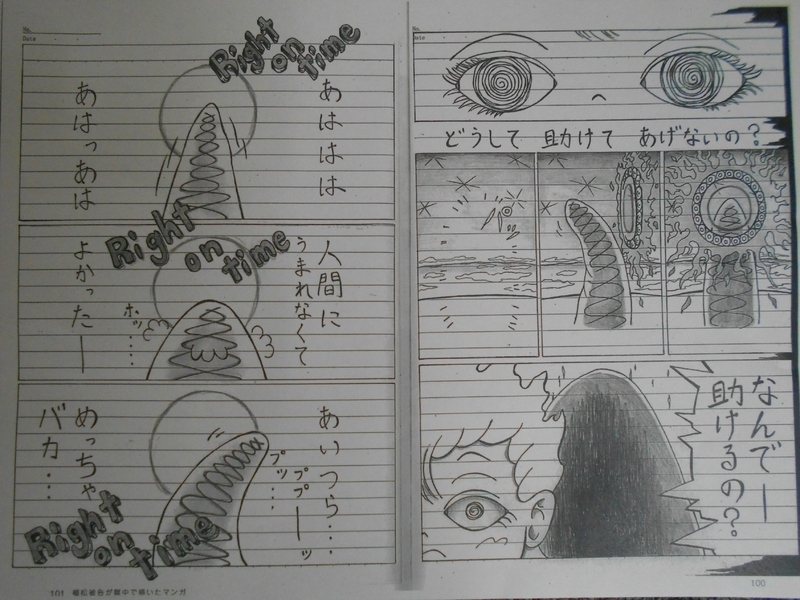 No.
Date
どうして 助けて あげないの?
なんでー
助けるの?
100
No.
Date
Right on time
あははは
あはっあは
Right on time
人間に
うまれなくて
よかったー
ホッ……
あいつら…
プッ…
ププーッ
めっちゃ
バカ…
Right on time
101 植松被告が獄中で描いたマンガ